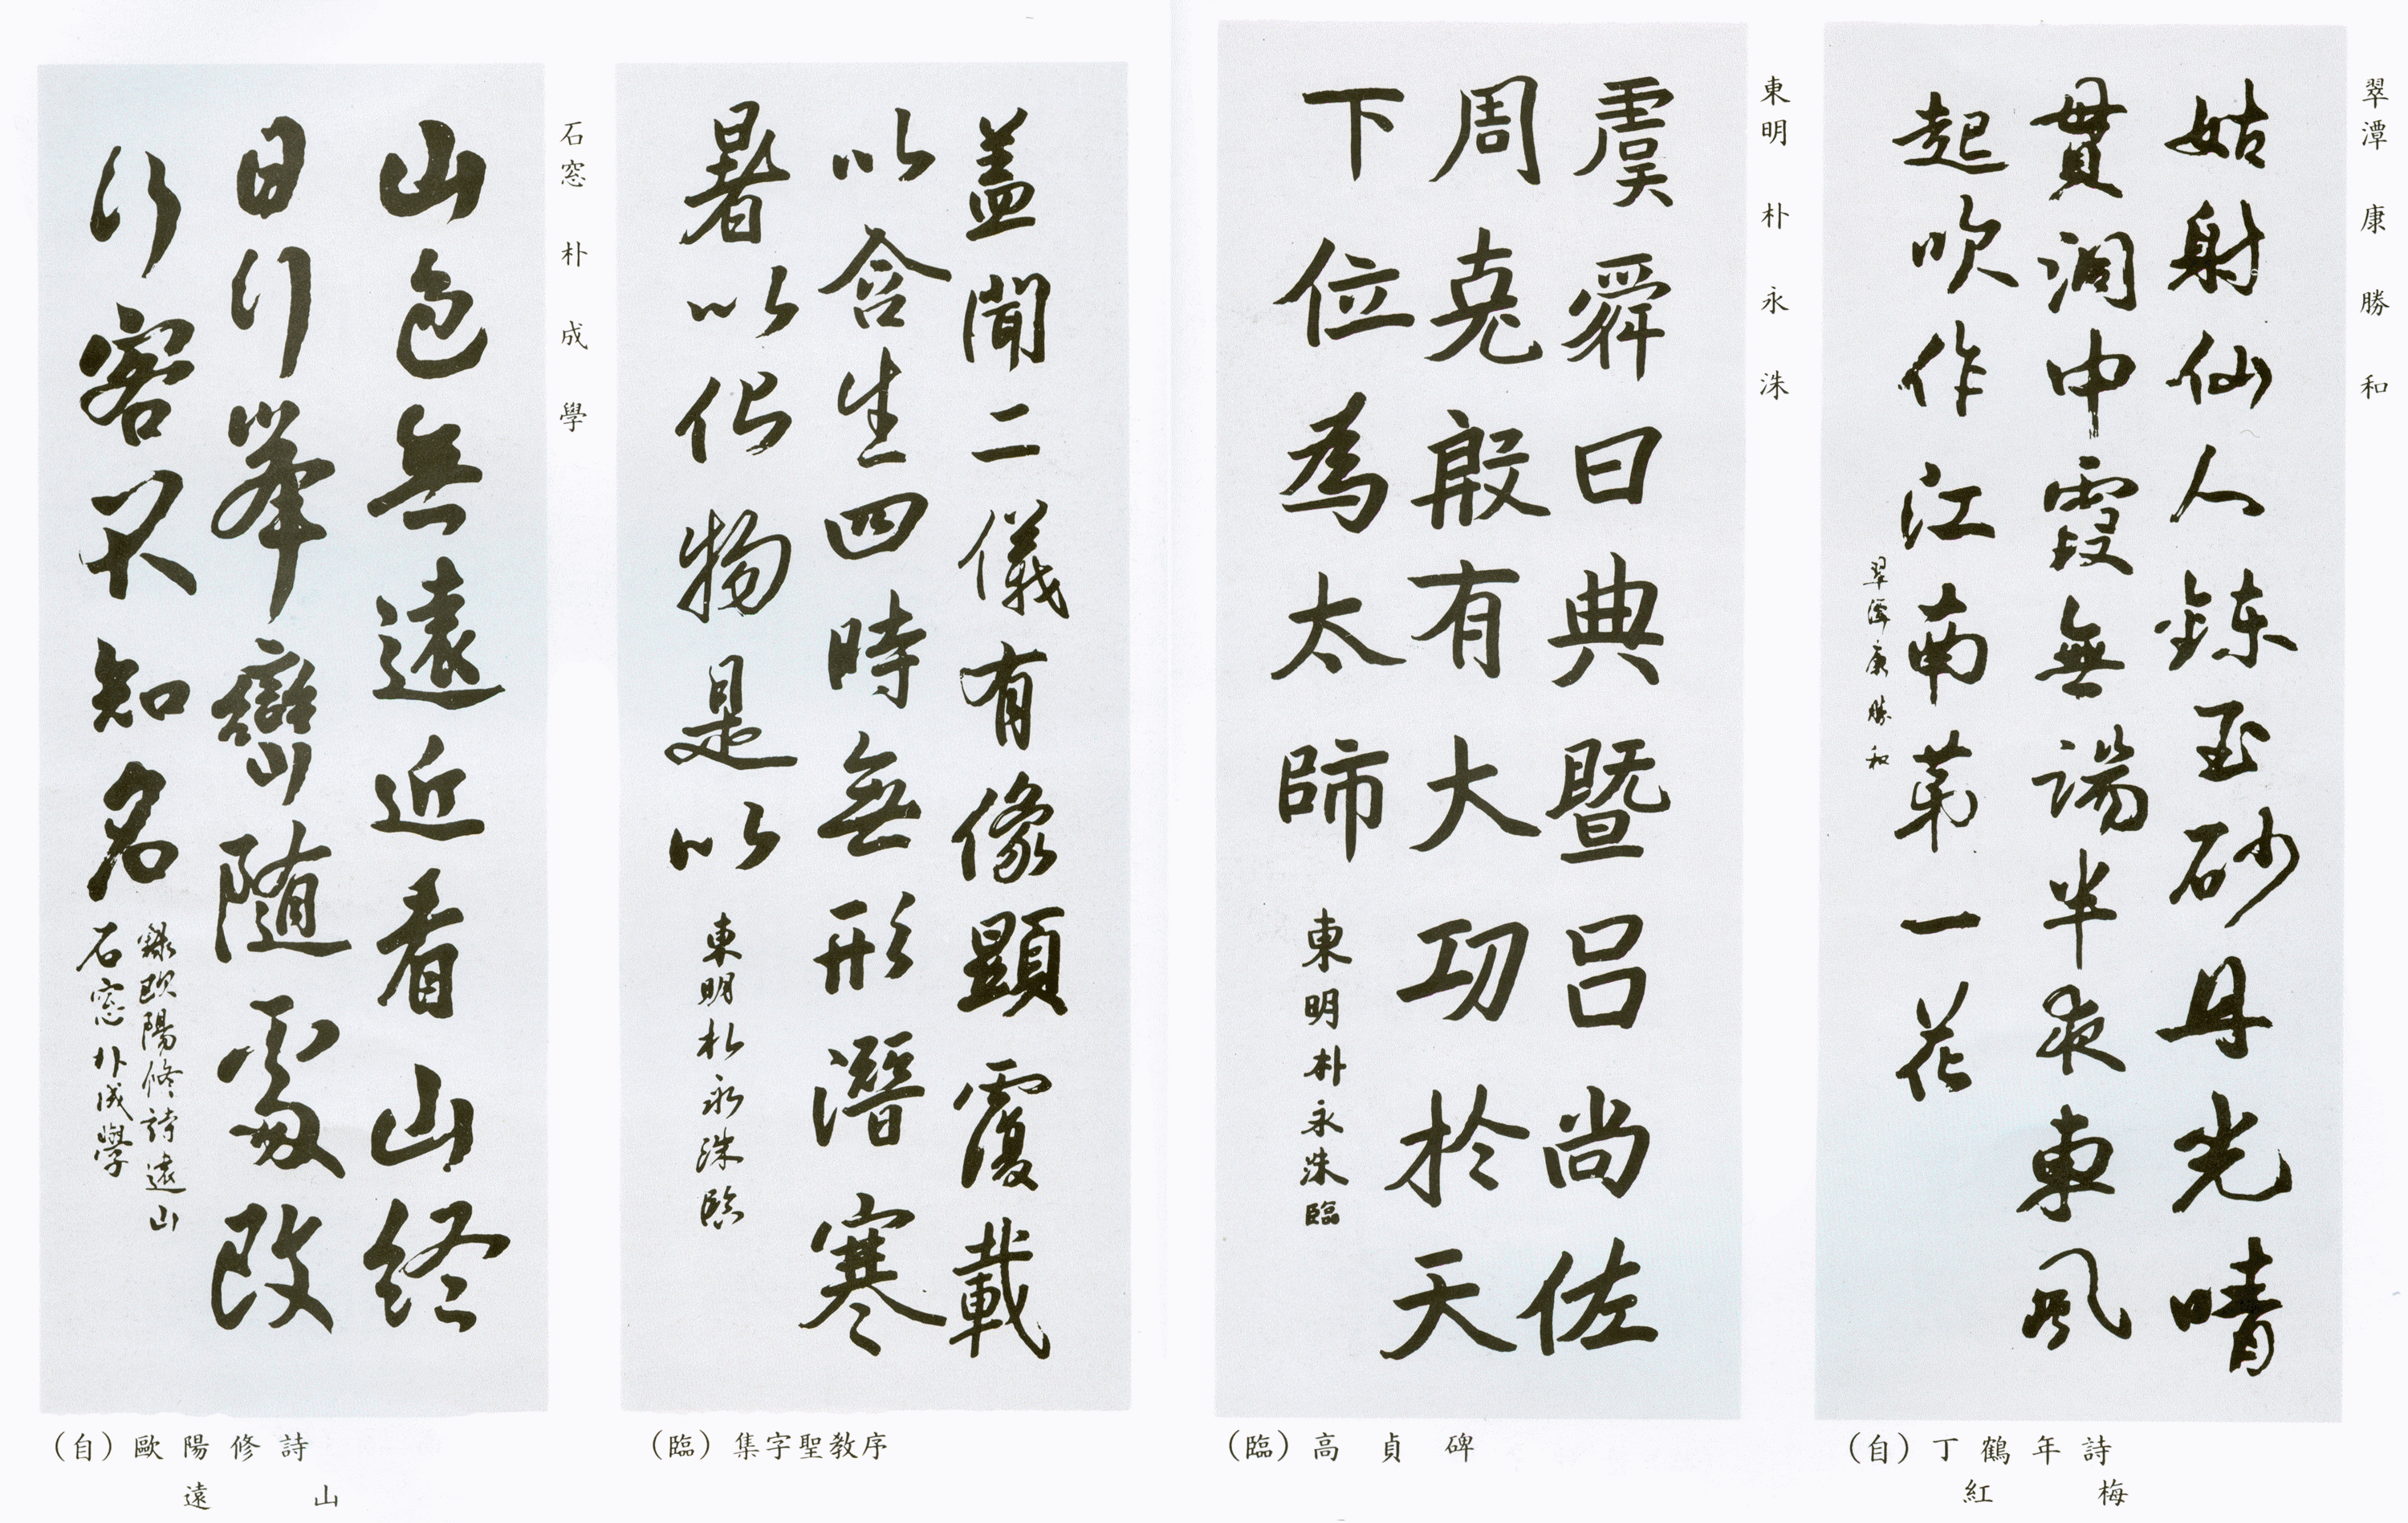 翠潭 康勝和
姑射仙人鍊玉砂丹光晴
貫澗中霞無端半夜東風
起吹作江南第一花
翠潭康勝和
(自) 丁鶴年詩
紅梅
東明 朴永洙
虞舜曰典暨呂尚佐
周克殷有大功於天
下位為太師
東明朴永洙臨
(臨) 高貞碑
蓋聞二儀有像顯覆載
以含生四時無形潛寒
暑以化物是以
東明朴永洙臨
(臨) 集字聖教序
石窓 朴成學
山色無遠近看山終
日行峯巒隨處改
行客不知名
錄歐陽修詩遠山
石窓朴成學
(自) 歐陽修詩
遠山